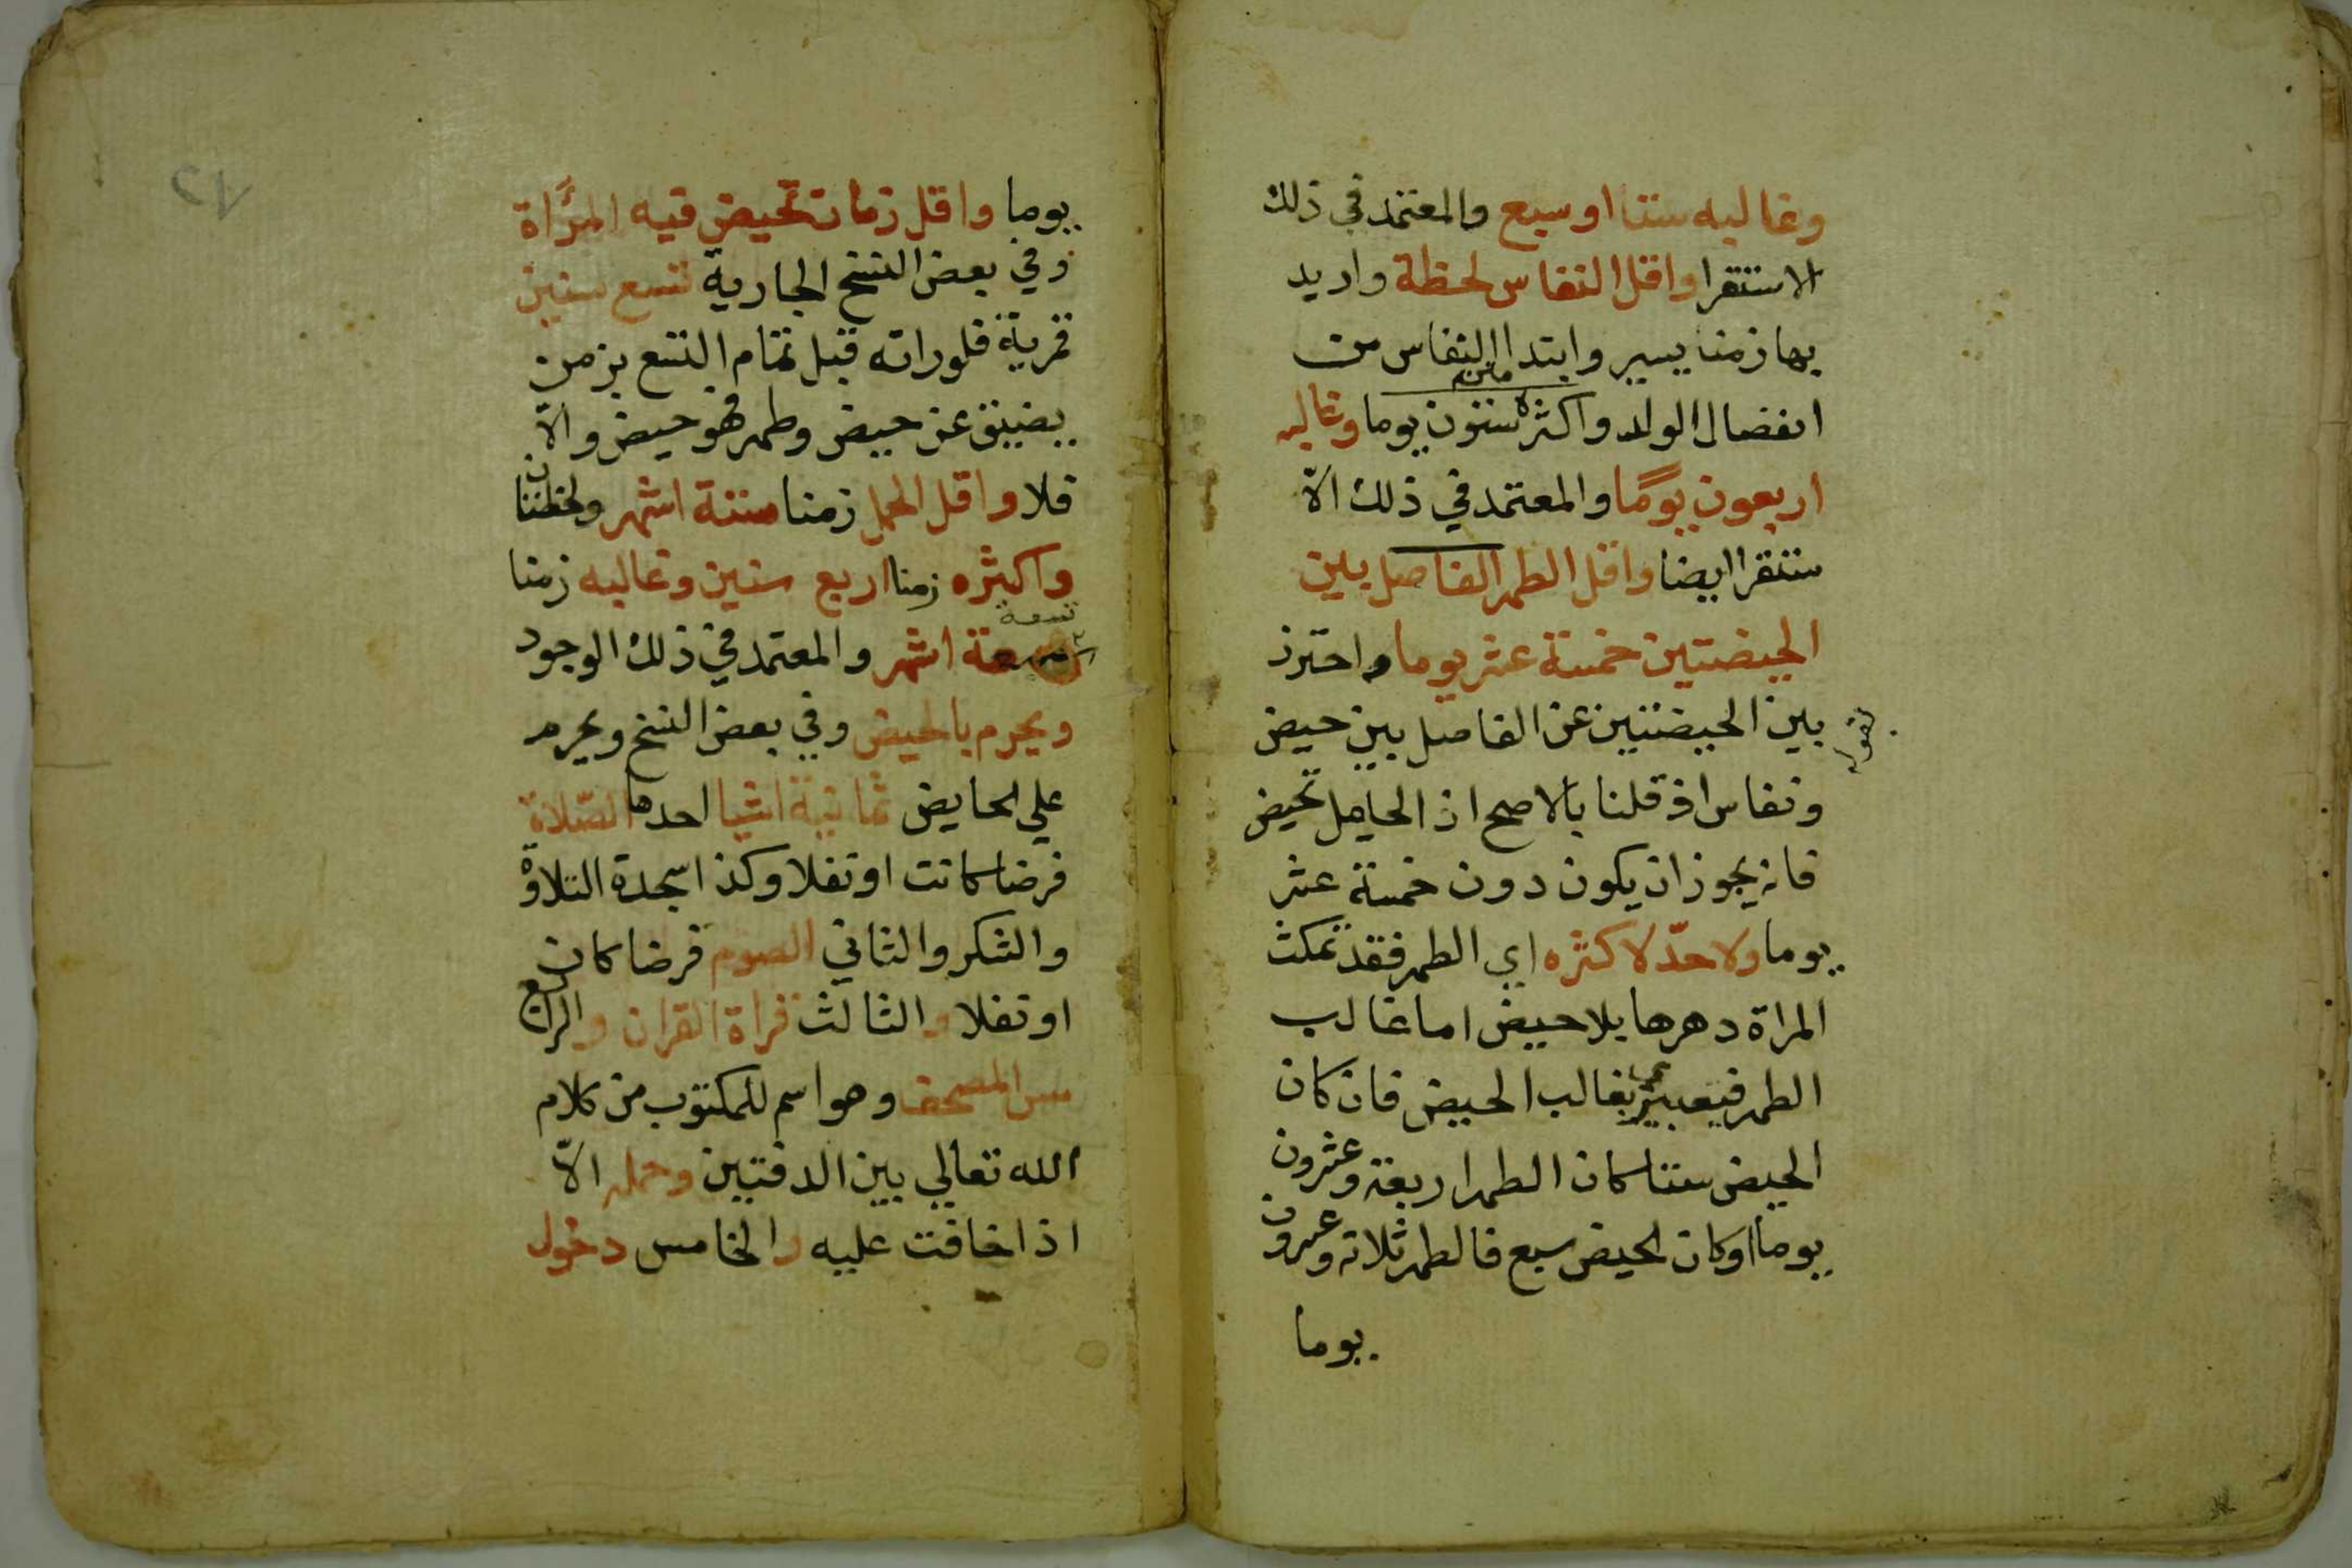 وغالبه ستا او سبع والمعتمد في ذلك
الاستقرا واقل النفاس لحظة واريد
بها زمنا يسير وابتدا النفاس من
انفصال الولد واكثره ستون يوما وغالبه
اربعون يومًا والمعتمد في ذلك الا
ستقرا ايضا واقل الطهر الفاصل بين
الحيضتين خمسة عشر يوما واحترز
بقوله
بين الحيضتين عن الفاصل بين حيض
ونفاس اذ قلنا بالاصح اذ الحامل تحيض
فانه يجوز ان يكون دون خمسة عشر
يوما ولا حدّ لاكثره اي الطهر فقد تمكث
المراة دهرها بلا حيض اما غالب
الطهر فيعتبر بغالب الحيض فان كان
الحيض ستا كان الطهر اربعة وعشرون
يوما او كان الحيض سبع فالطهر ثلاثه وعشرون
يوما
٨٢
يوما واقل زمان تحيض فيه المرأة
وفي بعض النسخ الجارية تسع سنين
قمرية فلو راته قبل تمام التسع بزمن
يضيق عن حيض وطهر فهو حيض والّا
فلا واقل الحمل زمنا ستة اشهر ولحظتان
واكثره زمنا اربع سنين وغالبه زمنا
تسعة
تسعة اشهر والمعتمد في ذلك الوجود
ويحرم بالحيض وفي بعض النسخ ويحرم
علي الحايض ثمانية اشيا احدها الصّلاة
فرضا كانت او نفلا وكذا سجدة التلاوة
والشكر والثاني الصوم فرضا كان
او نفلا والثالث قراة القران والرابع
مس المصحف وهو اسم للمكتوب من كلام
الله تعالي بين الدفتين وحمله الّا
اذا خافت عليه والخامس دخول